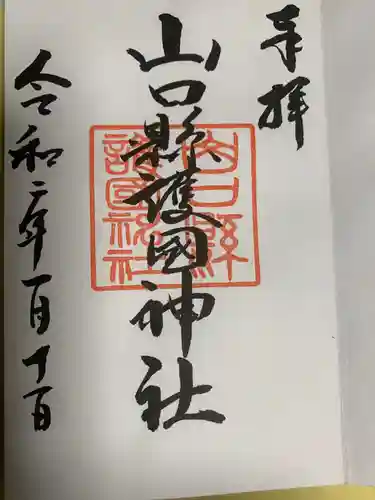 奉拝
山口縣護國神社
山口縣護國神社
令和二年一月十日